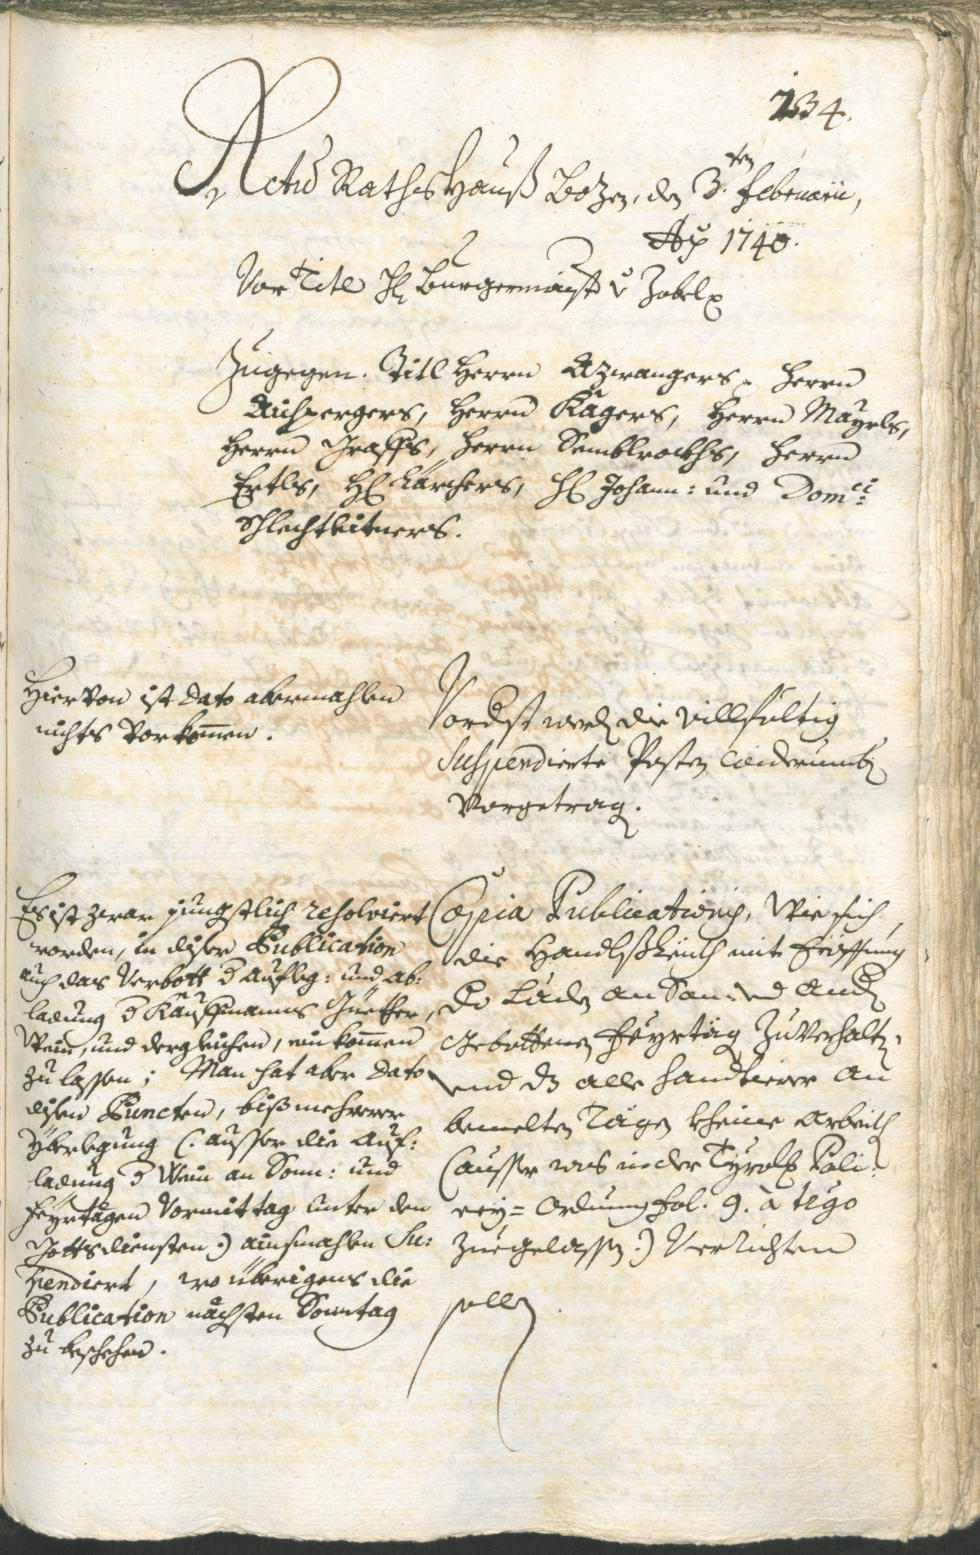 234.
Actũ Rathshauß Bozen, den 3.ten Februarii,
Aõ 1740.
Vor Titl H: Burgermaister v Zobel
Zugegen. Titl Herrn Azwangers, Herrn
Aichpergers, Herrn Kagers, Herrn Mayrls,
Herrn Graffs, Herrn Semblrockhs, Herrn
Ertls, H: Karchers, H: Johann: und Domci:
Schlechtleitners.
Hiervon ist dato abermahlen
nichts Vorkomen.
Vordist werd die villfältig
Suspendierte Posten widerumb
Vorgetrag.
Es ist zwar jüngstlich resolviert
worden, in diser Publication
auch das Verbott d Aufleg: und ab:
ladung d Kauffmanns Güetter,
Wein, und dergleichen, ein komen
zu lassen; Man hat aber dato
disen Puncten, biß mehrerer
Yberlegung (: ausser die Auf:
ladung d Wein an Sonn: und
Feyrtägen Vormittag unter den
Gottsdiensten :) ainsmahlen Su:
spendiert, wo übrigens die
Publication nächsten Sonntag
zu beschehen.
Copia Publicationis, Wie sich
die Handlsleuth mit Eröffnung
der Läden an Son: und and
gebottenen Feyrtäg zu Verhalt,
und dz alle handtierer an
bemelten Tägen kheine arbeith
(ausser was in der Tyrolis Poli:
cey= Ordnung fol. 9. à tergo
zuegelassen :) Verrichten
sollen.